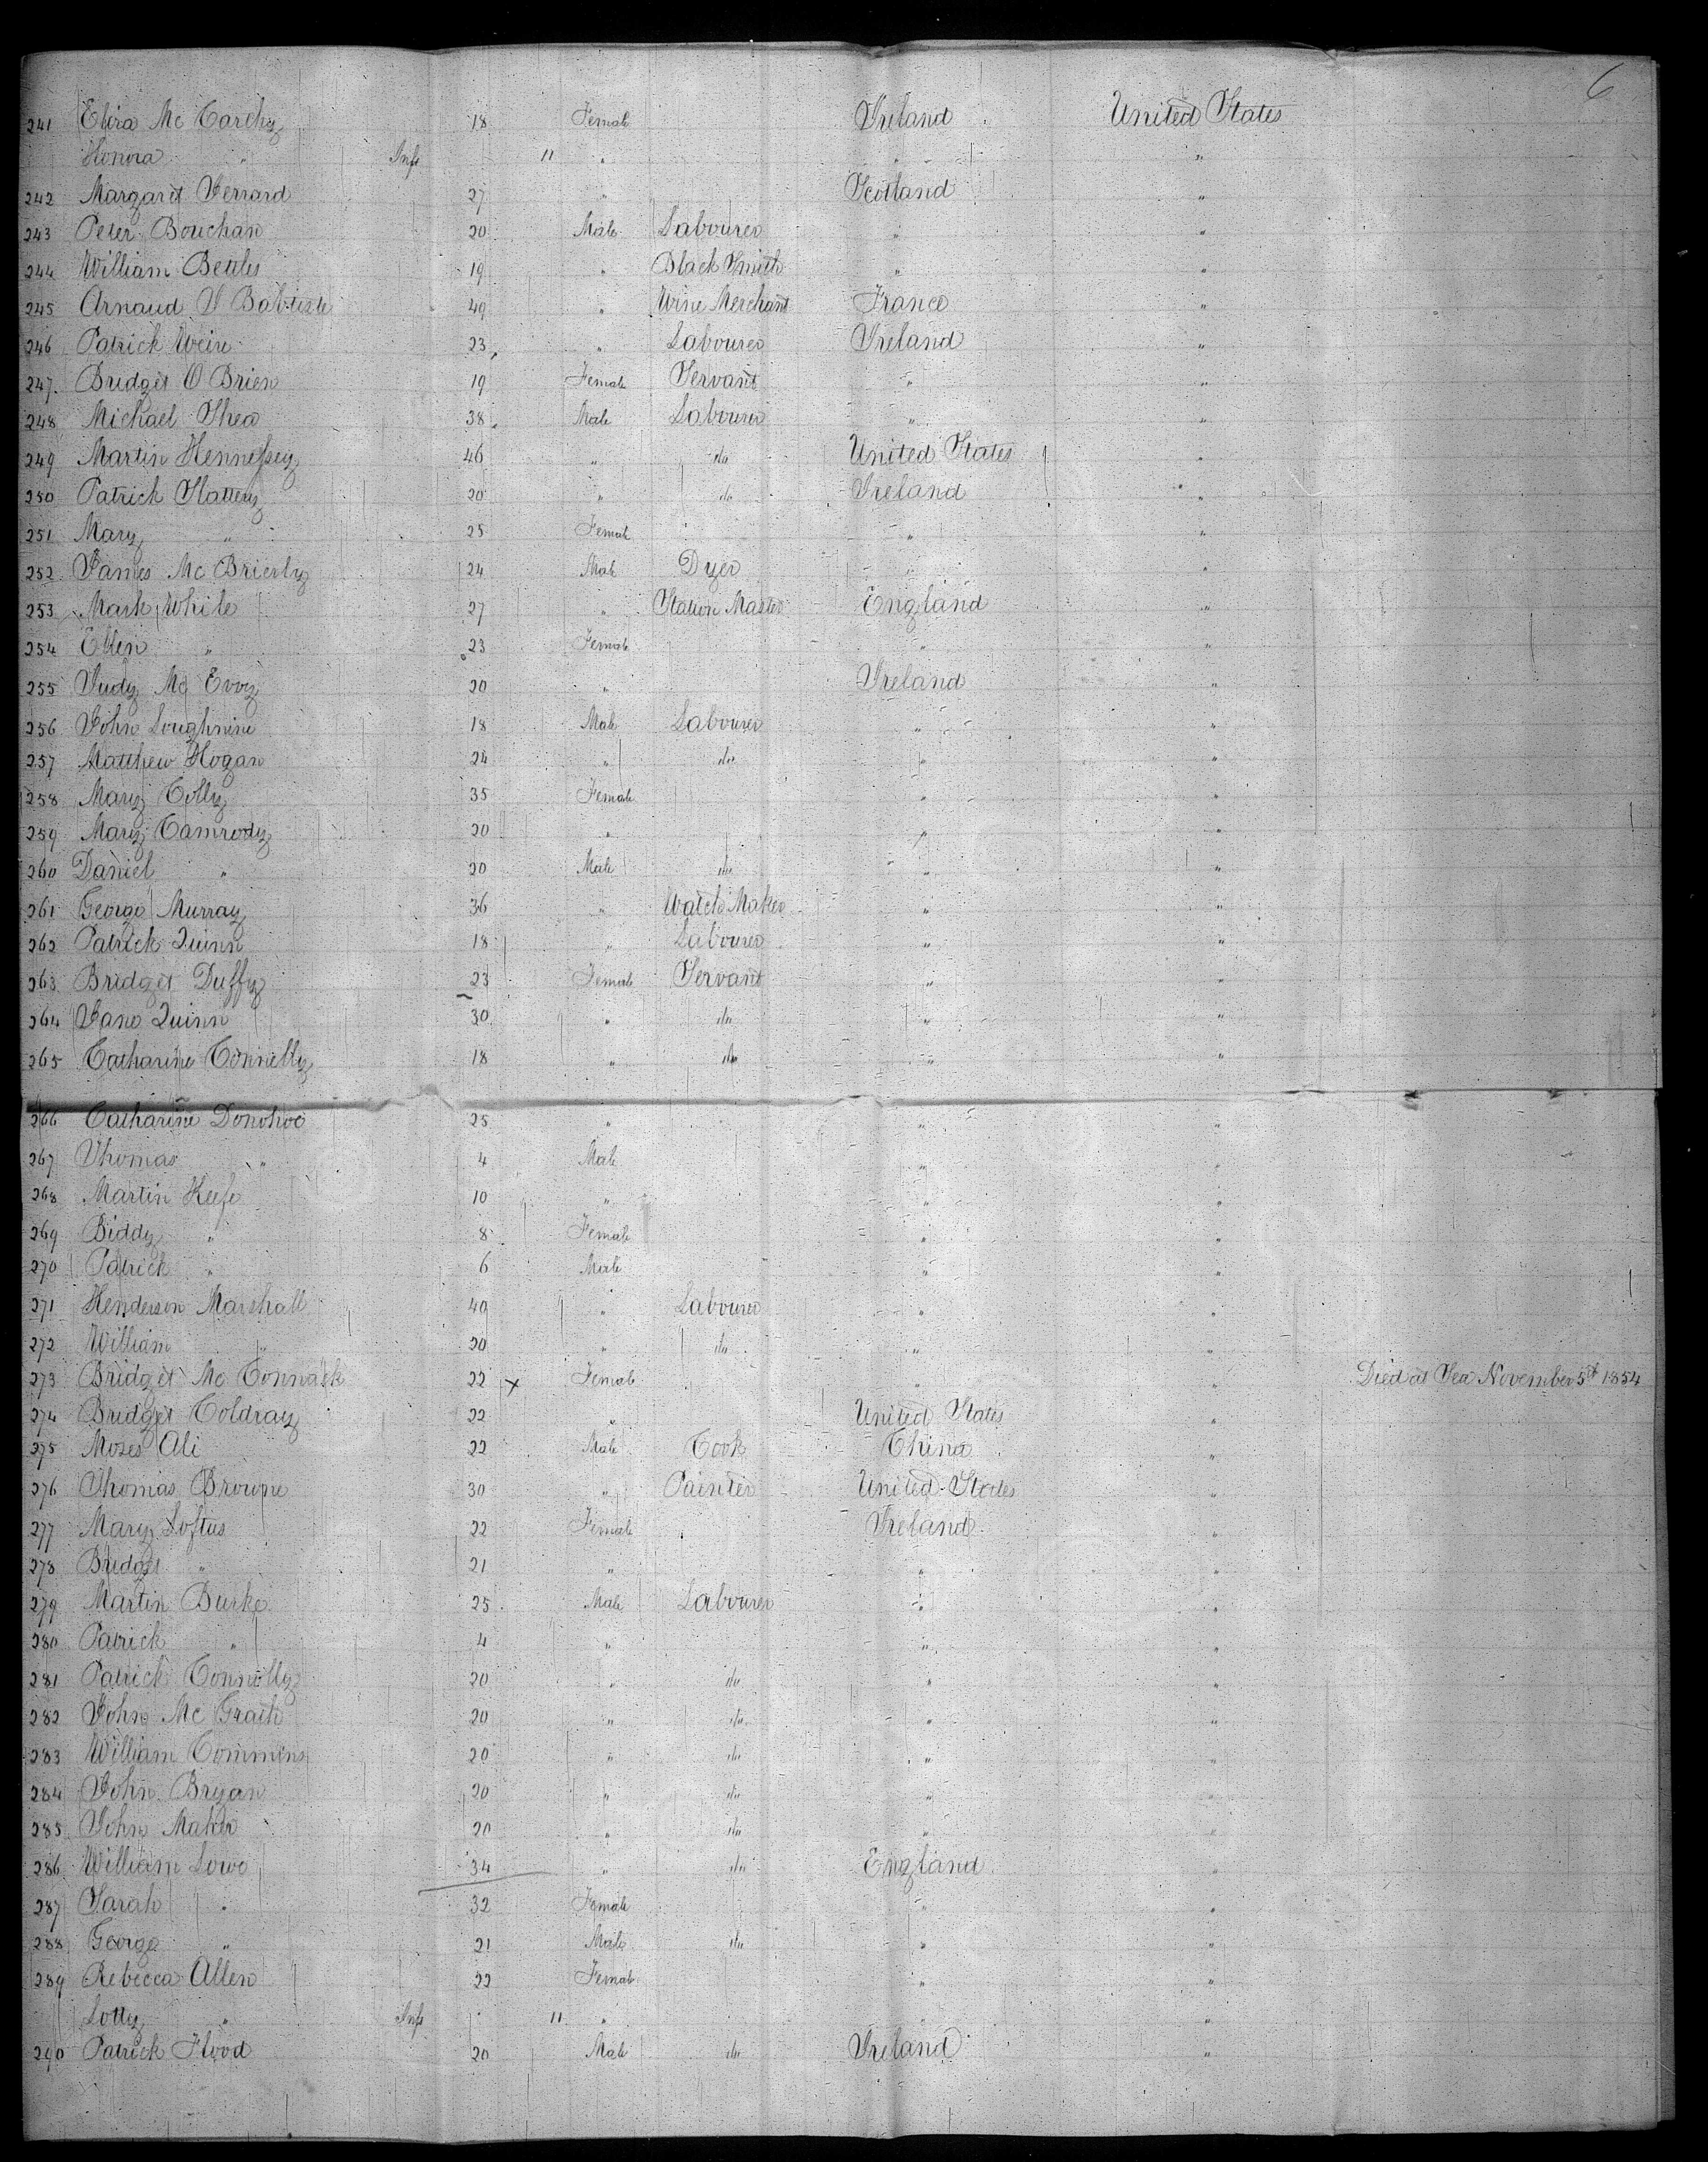 6
241 Eliza Mc Carthy 18 Female Ireland United States
Honora " Inft 11 " " "
242 Margaret Ferrard 27 " Scotland "
243 Peter Bouchan 20 Male Labourer " "
244 William Bettles 19 " Black Smith " "
245 Arnaud J Babtiste 49 " Wine Merchant France "
246 Patrick Weir 23 " Labourer Ireland "
247 Bridget O Brien 19 Female Servant " "
248 Michael Shea 38 Male Labourer " "
249 Martin Hennessey 46 " do United States "
250 Patrick Slattery 20 " do Ireland "
251 Mary " 25 Female " "
252 James Mc Brierly 24 Male Dyer " "
253 Mark White 27 " Station Master England "
254 Ellen " 23 Female " "
255 Judy Mc Evoy 20 " Ireland "
256 John Loughnine 18 Male Labourer " "
257 Matthew Hogan 24 " do " "
258 Mary Colly 35 Female " "
259 Mary Camrody 20 " " "
260 Daniel " 20 Male do " "
261 George Murray 36 " Watch Maker " "
262 Patrick Quinn 18 " Labourer " "
263 Bridget Duffy 23 Female Servant " "
264 Jane Quinn 30 " do " "
265 Catharine Connelly 18 " do " "
266 Catharine Donohoe 25 " " "
267 Thomas " 4 Male " "
268 Martin Keefe 10 " " "
269 Biddy " 8 Female " "
270 Patrick " 6 Male " "
271 Henderson Marshall 40 " Labourer " "
272 William " 20 " do " "
273 Bridget Mc Connack 22 x Female " " Died at Sea November 5th 1854
274 Bridget Coldray 22 " United States "
275 Moses Ali 22 Male Cook China "
276 Thomas Browne 30 " Painter United States "
277 Mary Loftus 22 Female Ireland "
278 Bridget " 21 " " "
279 Martin Burke 25 Male Labourer " "
280 Patrick " 4 " " "
281 Patrick Connolly 20 " do " "
282 John Mc Grath 20 " do " "
283 William Commins 20 " do " "
284 John Bryan 20 " do " "
285 John Maher 20 " do " "
286 William Lowe 34 " do England "
287 Sarah " 32 Female " "
288 George " 21 Male do " "
289 Rebecca Allen 22 Female " "
Lotty " Inft 11 " " "
290 Patrick Flood 20 Male do Ireland "